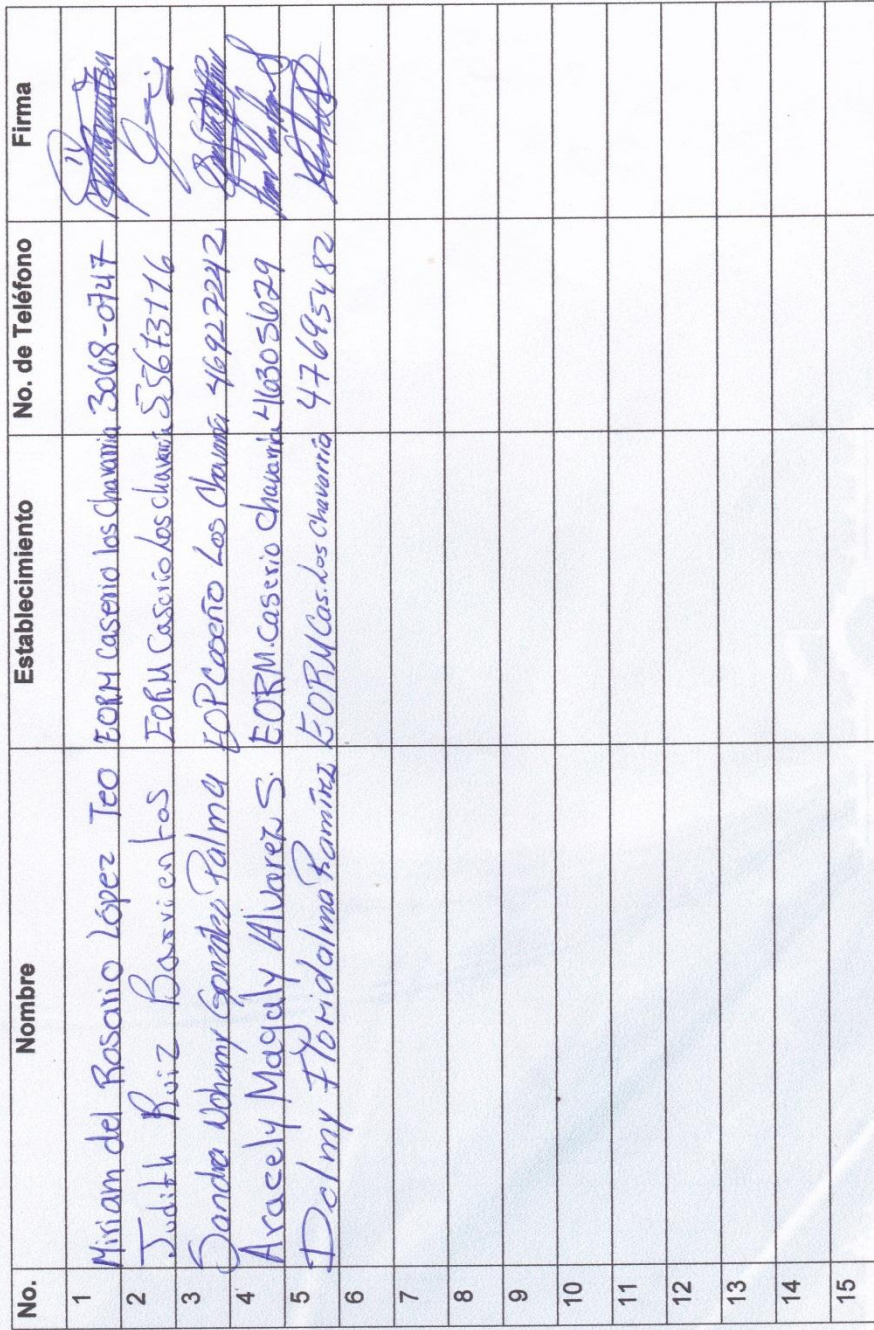 No. Nombre Establecimiento No. de Teléfono Firma
1 Miriam del Rosario López Teo EORM Caserio los Chavarria 3068-0747
2 Judith Ruiz Barrientos EORM Caserio Los Chavarria 55673116
3 Sandra Nohemy González Palma EOP Caserio Los Chavarria 46927242
4 Aracely Magaly Alvarez S. EORM. Caserio Chavarria 46305629
5 Delmy Floridalma Ramírez EORM Cas. Los Chavarria 47695482
6
7
8
9
10
11
12
13
14
15